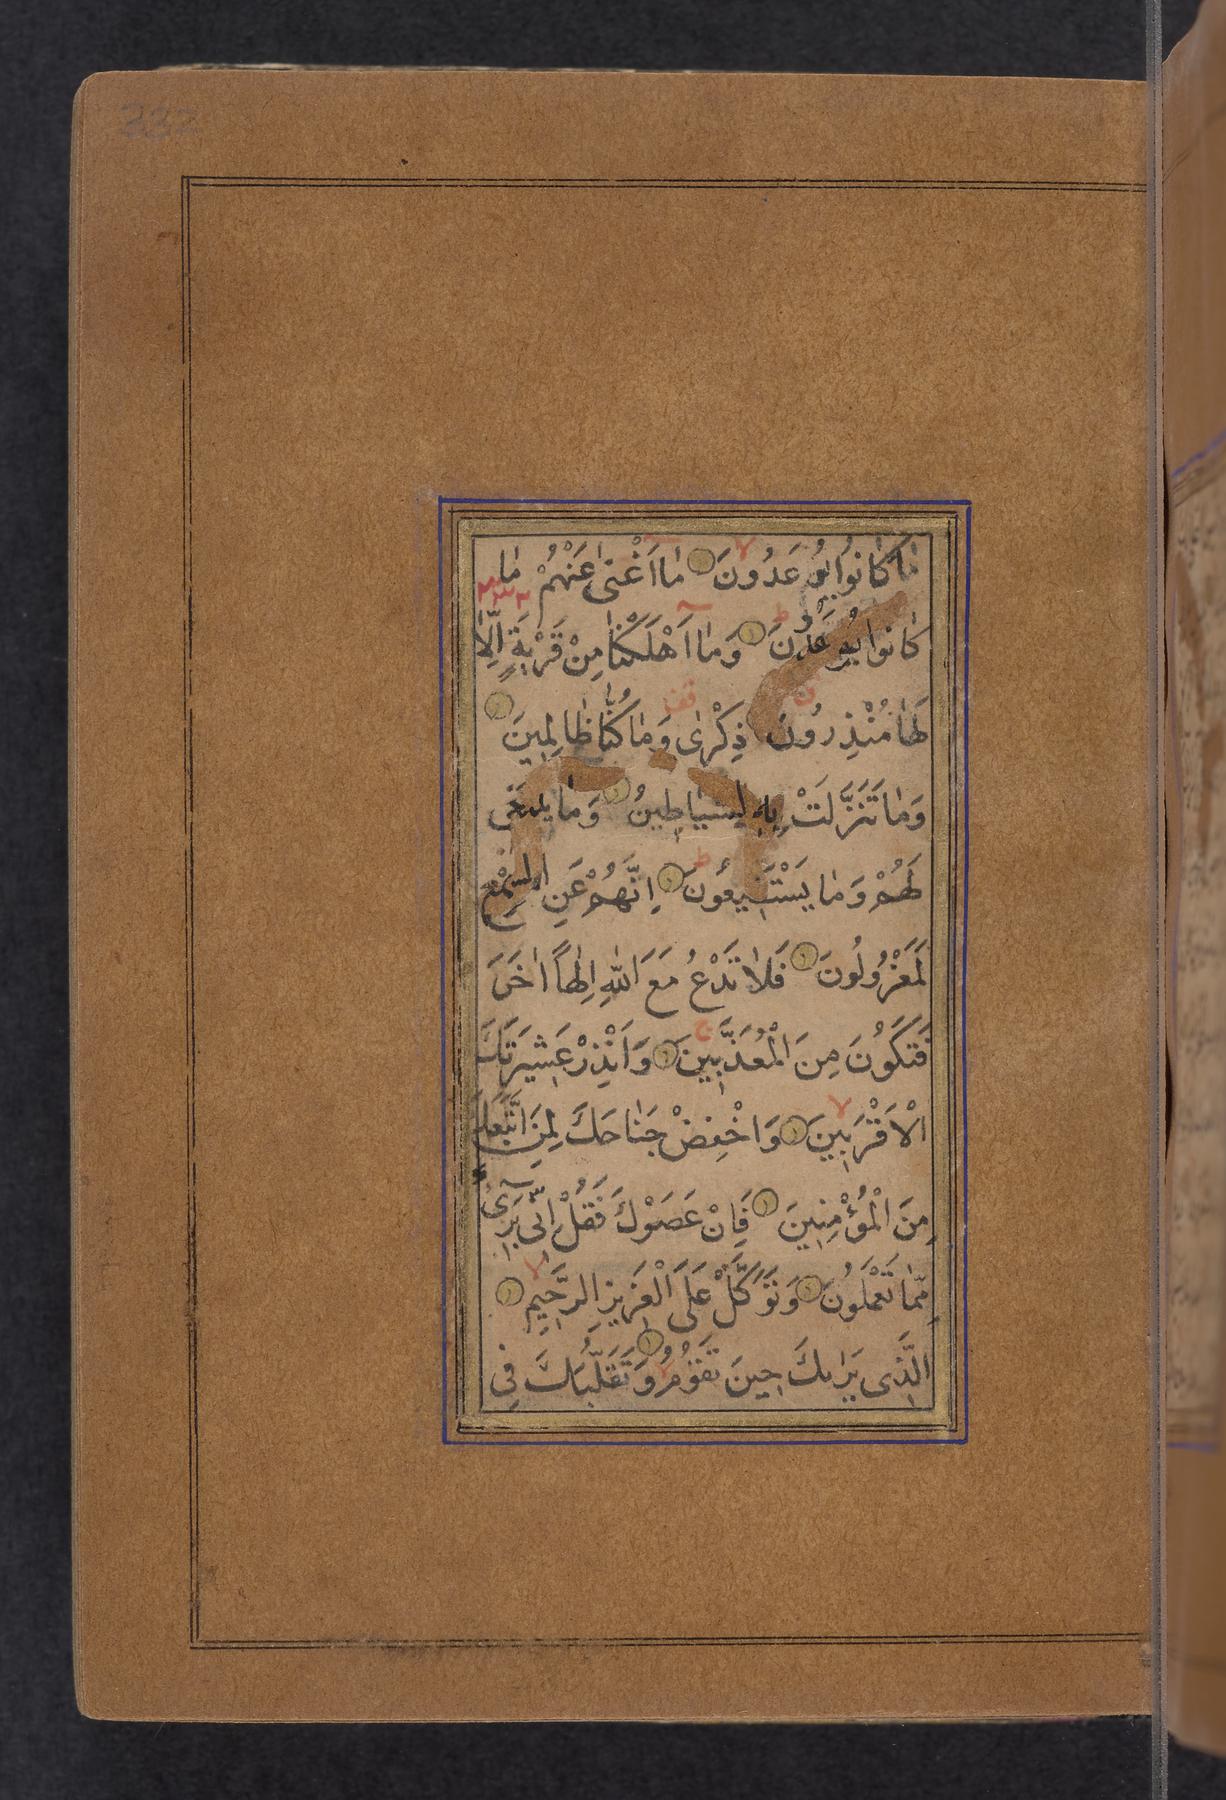 332
مٰا كٰانُوا يُوعَدُونَ مٰا اَغْنٰى عَنْهُمْ مٰا
كٰانوا يُوعَدُنَ وَمٰا اَهْلَكْنٰا مِنْ قَرْيَةٍ اِلّٰا
لَهٰا مُنْذِرُونَ ذِكْرٰى وَمٰا كُنّٰا ظٰالِمِينَ
وَمٰا تَنَزَّلَتْ بِهِ لشيٰاطِينُ وَمٰا ينبَغى
لَهُمْ وَمٰا يَسْتَطِيعُونَ اِنَّهُمْ عَنِ السَّمْعِ
لَمَعْزُولُونَ فَلٰا تَدْعُ مَعَ اللّٰهِ اِلٰهاً اٰخَرَ
فَتَكُونَ مِنَ الْمُعَذَّبِينَ وَاَنْذِرْ عَشِيرَتَكَ
الْاَقْرَبِينَ وَاخْفِضْ جَنٰاحَكَ لِمَنِ اتَّبَعَكَ
مِنَ الْمُؤْمِنِينَ فَاِنْ عَصَوْكَ فَقُلْ اِنّى بَرِىءٌ
مِمّٰا تَعْمَلُونَ وَتَوَكَّلْ عَلَى الْعَزِيزِ الرَّحِيمِ
الَّذِى يَرٰيكَ حِينَ تَقُومُ وَتَقَلُّبَكَ فِى